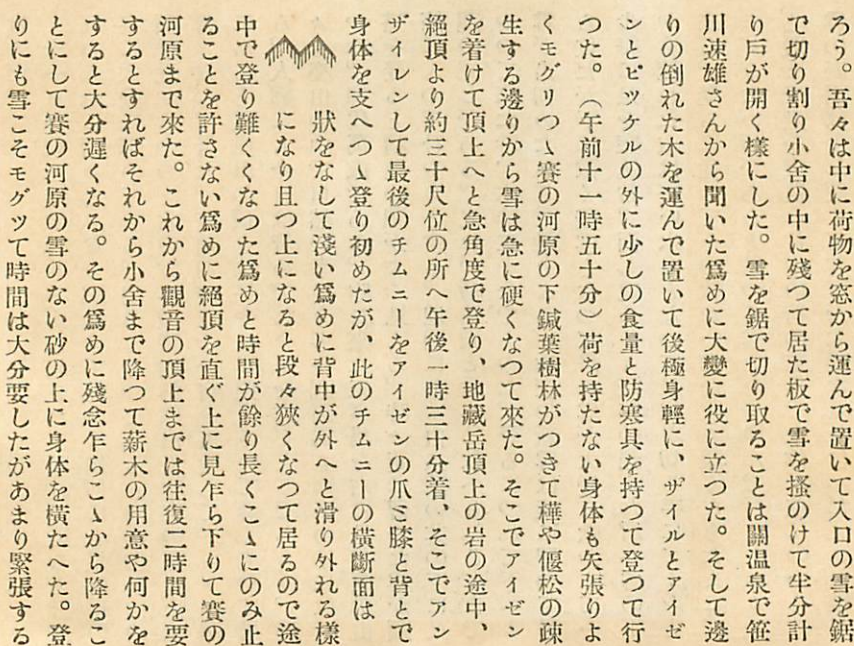 ろう。吾々は中に荷物を窓から運んで置いて入口の雪を鋸
で切り割り小舎の中に殘つて居た板で雪を搔のけて半分計
り戸が開く樣にした。雪を鋸で切り取ることは關温泉で笹
川速雄さんから聞いた爲めに大變に役に立つた。そして邊
りの倒れた木を運んで置いて後極身輕に、ザイルとアイゼ
ンとピッケルの外に少しの食量と防寒具を持つて登つて行
つた。（午前十一時五十分）荷を持たない身体も矢張りよ
くモグリつゝ賽の河原の下鍼葉樹林がつきて樺や偃松の疎
生する邊りから雪は急に硬くなつて來た。そこでアイゼン
を着けて頂上へと急角度で登り、地藏岳頂上の岩の途中、
絕頂より約三十尺位の所へ午後一時三十分着、そこでアン
ザイレンして最後のチムニーをアイゼンの爪ミ膝と背とで
身体を支へつゝ登り初めたが、此のチムニーの橫斷面は
狀をなして淺い爲めに背中が外へと滑り外れる樣
になり且つ上になると段々狹くなつて居るので途
中で登り難くくなつた爲めと時間が餘り長くこゝにのみ止
ることを許さない爲めに絕頂を直ぐ上に見乍ら下りて賽の
河原まで來た。これから觀音の頂上までは往復二時間を要
するとすればそれから小舎まで降つて薪木の用意や何かを
すると大分遲くなる。その爲めに殘念乍らこゝから降るこ
とにして賽の河原の雪のない砂の上に身体を橫たへた。登
りにも雪こそモグツて時間は大分要したがあまり緊張する